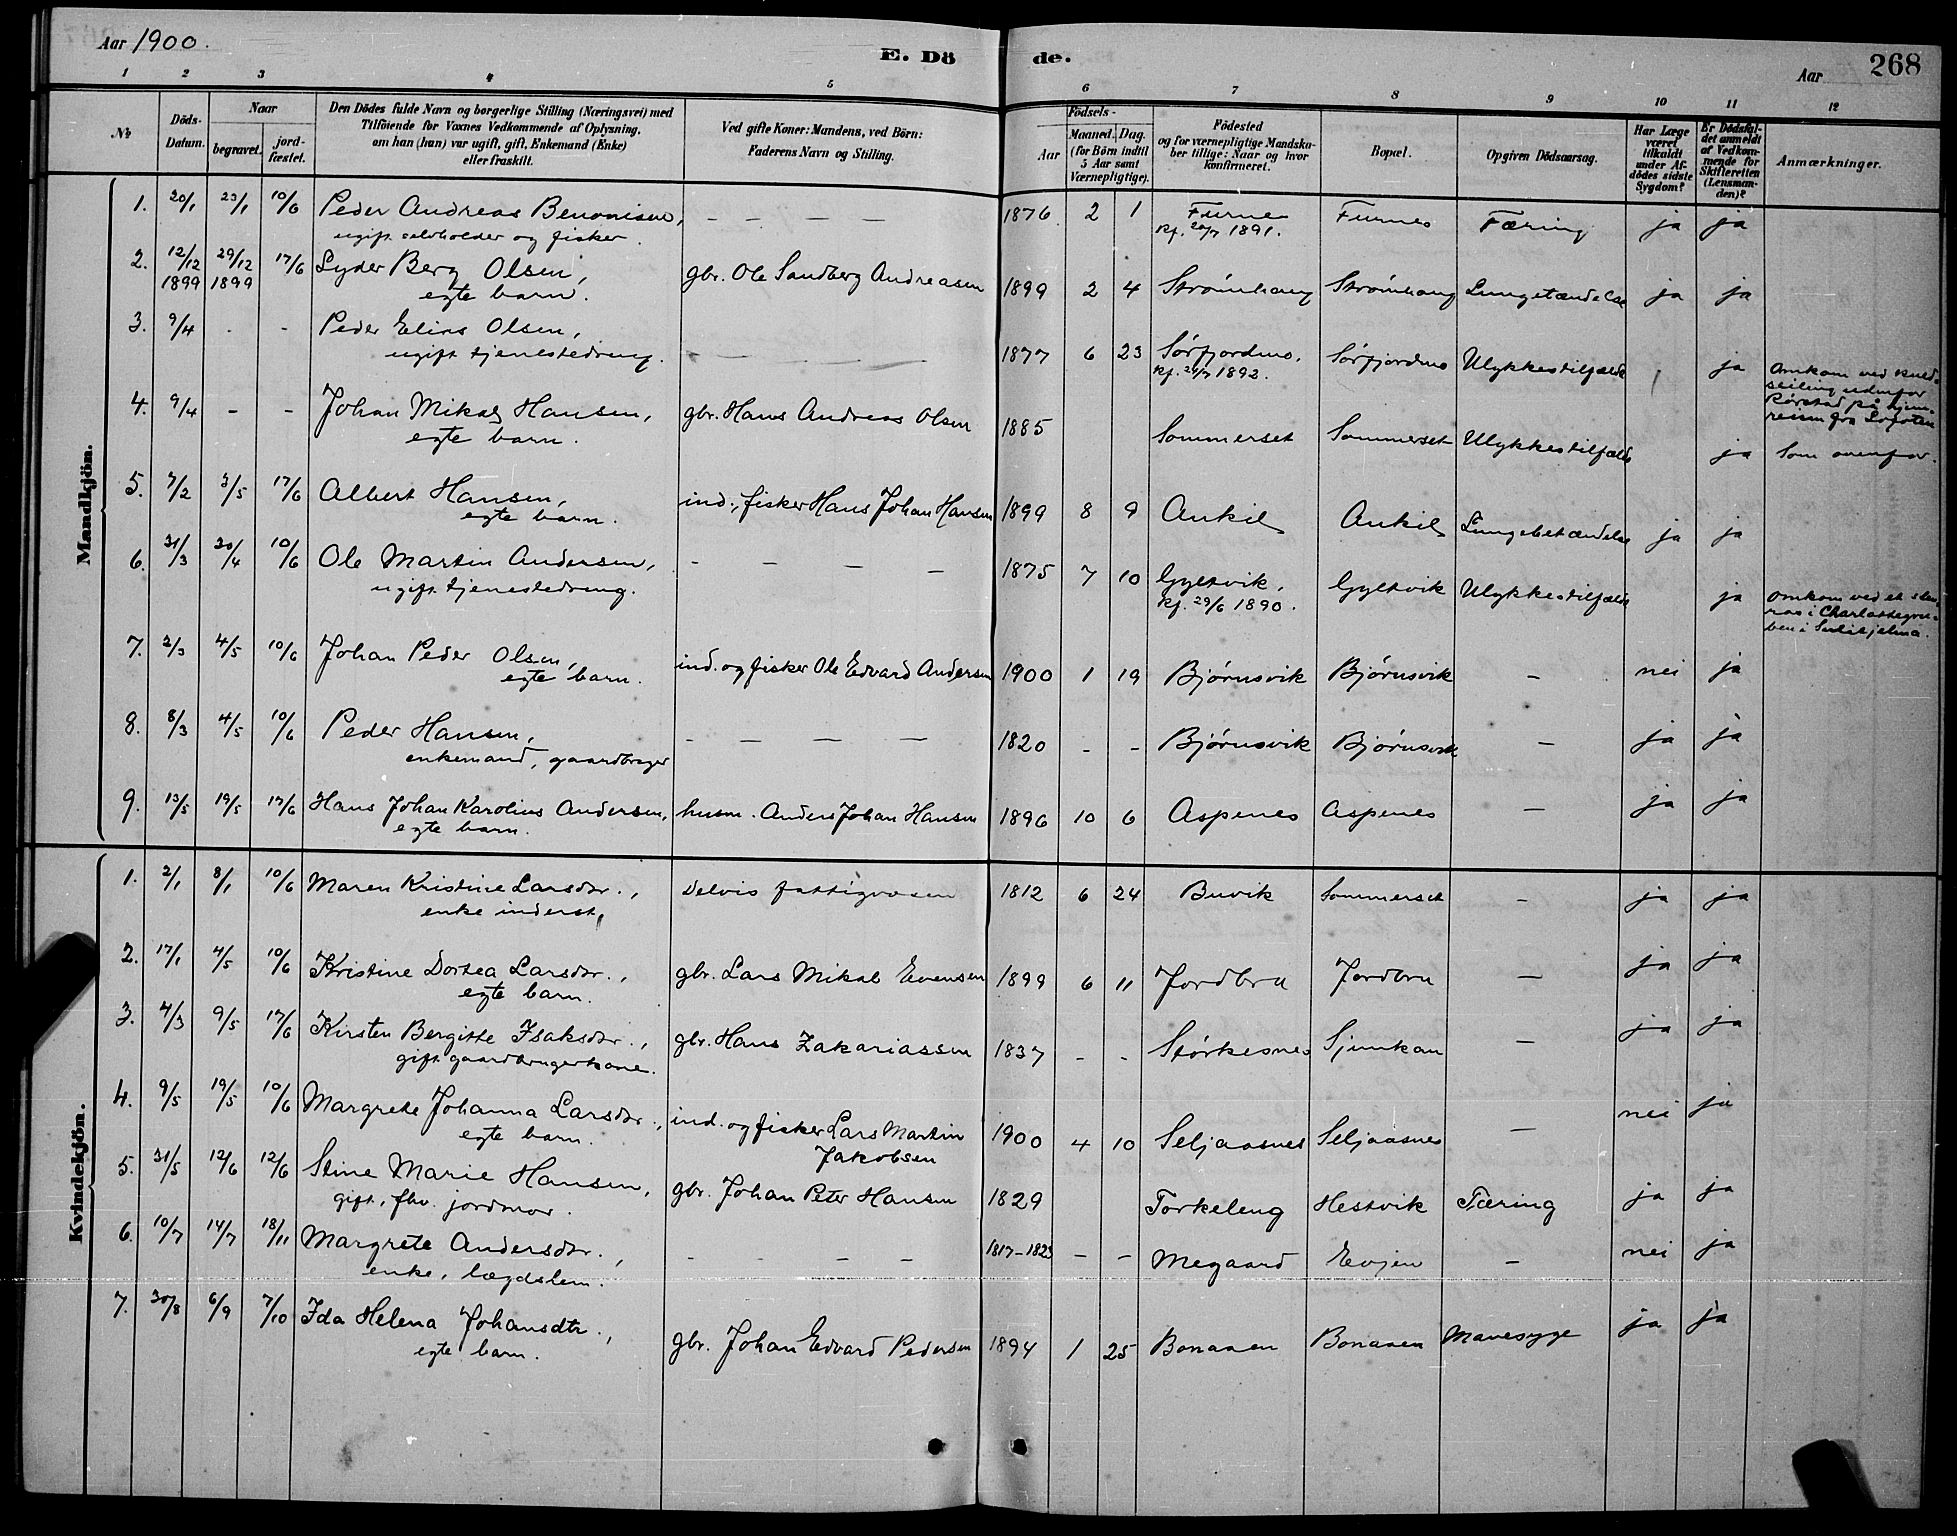 Aar 1900.
E. Dö de.
Aar 268
1 2 3 4 5 6 7 8 9 10 11 12
No
Döds-Datum.
Naar
begravet. jord-fæstet.
Den Dödes fulde Navn og borgerlige Stilling (Næringsvei) med
Tilföiende for Voxnes Vedkommende af Oplysning,
om han (hun) var ugift, gift, Enkemand (Enke)
eller fraskilt.
Ved gifte Koner: Mandens, ved Börn:
Faderens Navn og Stilling.
Födsels-
Aar Maaned. Dag.
(for Börn indtil
5 Aar samt
Værnepligtige).
Födested
og for værnepligtige Mandska-
ber tillige: Naar og hvor
konfirmeret.
Bopæl.
Opgiven Dödsaarsag.
Har Læge
været
tilkaldt
under Af-
dödes sidste
Sygdom?
Er Dödsfal-
det anmeldt
af Vedkom-
mende for
Skifteretten
(Lensman-
den)?
Anmærkninger.
Mandkjön.
1. 20/1 23/1 10/6 Peder Andreas Benonisen, — — — — 1876 2 1 Furnes Furnes Tæring ja ja
ugift selvholder og fisker. kf. 20/7 1891.
2. 12/12 1899 29/12 1899 17/6 Lyder Berg Olsen, gbr. Ole Sandberg Andreasen 1899 2 4 Strømhaug Strømhaug ja ja
egte barn.
3. 9/4 - - Peder Elias Olsen, — — — 1877 6 23 Sørfjordmo. Sørfjordmo Ulykkestilfælde ja Omkom ved kuld-
ugift tjenestedreng. kf. 24/7 1892. seiling udenfor
Rørstad på hjem-
reisen fra Lofoten
4. 9/4 - - Johan Mikal Hansen, gbr. Hans Andreas Olsen 1885 Sommerset Sommerset Ulykkestilfælde ja Som ovenfor.
egte barn.
5. 7/2 3/5 17/6 Albert Hansen, ind., fisker Hans Johan Hansen 1899 8 9 Ankil Ankil Lungebetændelse ja ja
egte barn.
6. 31/3 20/4 10/6 Ole Martin Andersen, - — — — 1875 7 10 Gyltvik, Gyltvik Ulykkestilfælde ja Omkom ved et sten-
ugift tjenestedreng. kf. 29/6 1890. ras i Charlottegru-
ben i Sulitjelma.
7. 2/3 4/5 10/6 Johan Peder Olsen, ind. og fisker Ole Edvard Andersen 1900 1 19 Bjørnsvik Bjørnsvik — nei ja
egte barn.
8. 8/3 4/5 10/6 Peder Hansen, — — — — 1820 - - Bjørnsvik Bjørnsvik — ja ja
enkemand, gaardbruger
9. 13/5 19/5 17/6 Hans Johan Karolius Andersen, husm. Anders Johan Hansen 1896 10 6 Aspenes Aspenes — ja ja
egte barn.
Kvindekjön.
1. 2/1 8/1 10/6 Maren Kristine Larsdtr., Delvis fattigvæsen 1812 6 24 Buvik Sommerset — ja ja
enke inderst,
2. 17/1 4/5 10/6 Kristine Dortea Larsdtr., gbr. Lars Mikal Evensen 1899 6 11 Jordbru Jordbru — ja ja
egte barn.
3. 4/3 9/5 17/6 Kirsten Bergitte Isaksdtr., gbr. Hans Zakariassen 1837 - - Størkesnes Sjunkan — ja ja
gift gaardbrugerkone.
4. 9/5 19/5 10/6 Margrete Johanna Larsdtr., ind. og fisker Lars Martin 1900 4 10 Seljaasnes Seljaasnes — nei ja
egte barn. Jakobsen
5. 31/5 12/6 12/6 Stine Marie Hansen, gbr. Johan Peter Hansen 1829 Torkeleng Hestvik Tæring ja ja
gift, fhv. jordmor.
6. 10/7 14/7 18/11 Margrete Andersdtr., - - — — 1817-1823 — — Megaard Evjen — nei ja
enke, lægdslem.
7. 30/8 6/9 7/10 Ida Helena Johansdtr., gbr. Johan Edvard Pedersen 1894 1 25 Bonaasen Bonaasen Mavesyge ja ja
egte barn.